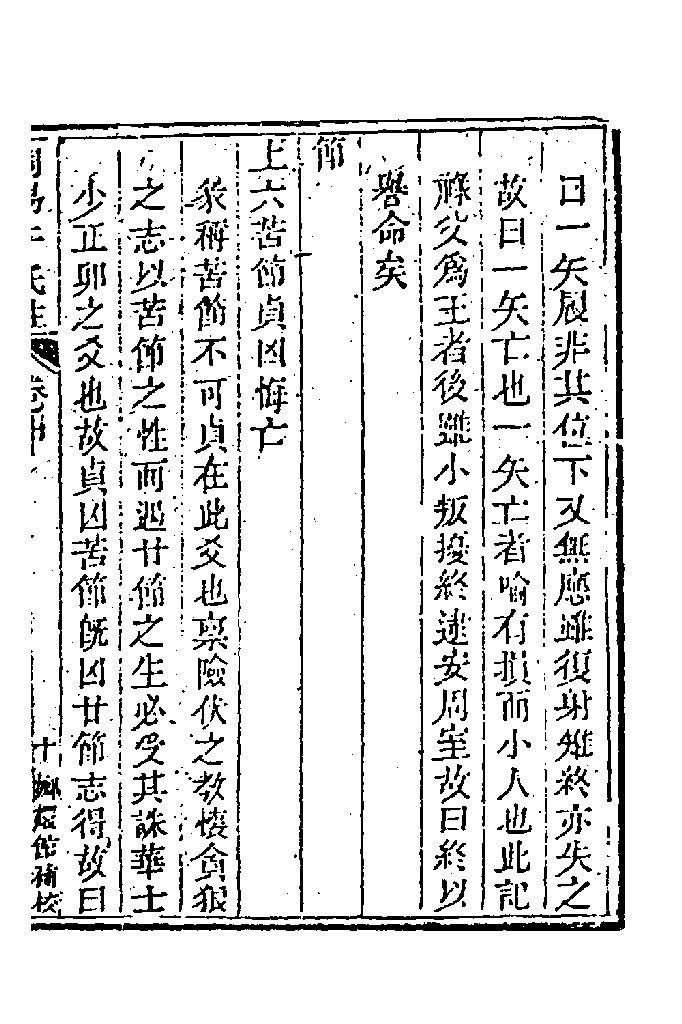 曰一矢履非其位下又無應雖復射雉終亦失之
故曰一矢亡也一矢亡者喻有損而小人也此記
祿父爲王者後雖小叛擾終逮安周室故曰終以
譽命矣
節
上六苦節貞凶悔亡
彖稱苦節不可貞在此爻也稟險伏之教懷貪狠
之志以苦節之性而遇甘節之主必受其誅華士
少正卯之爻也故貞凶苦節旣凶甘節志得故曰
周易干氏注 卷中 十 鄉嬛館補校